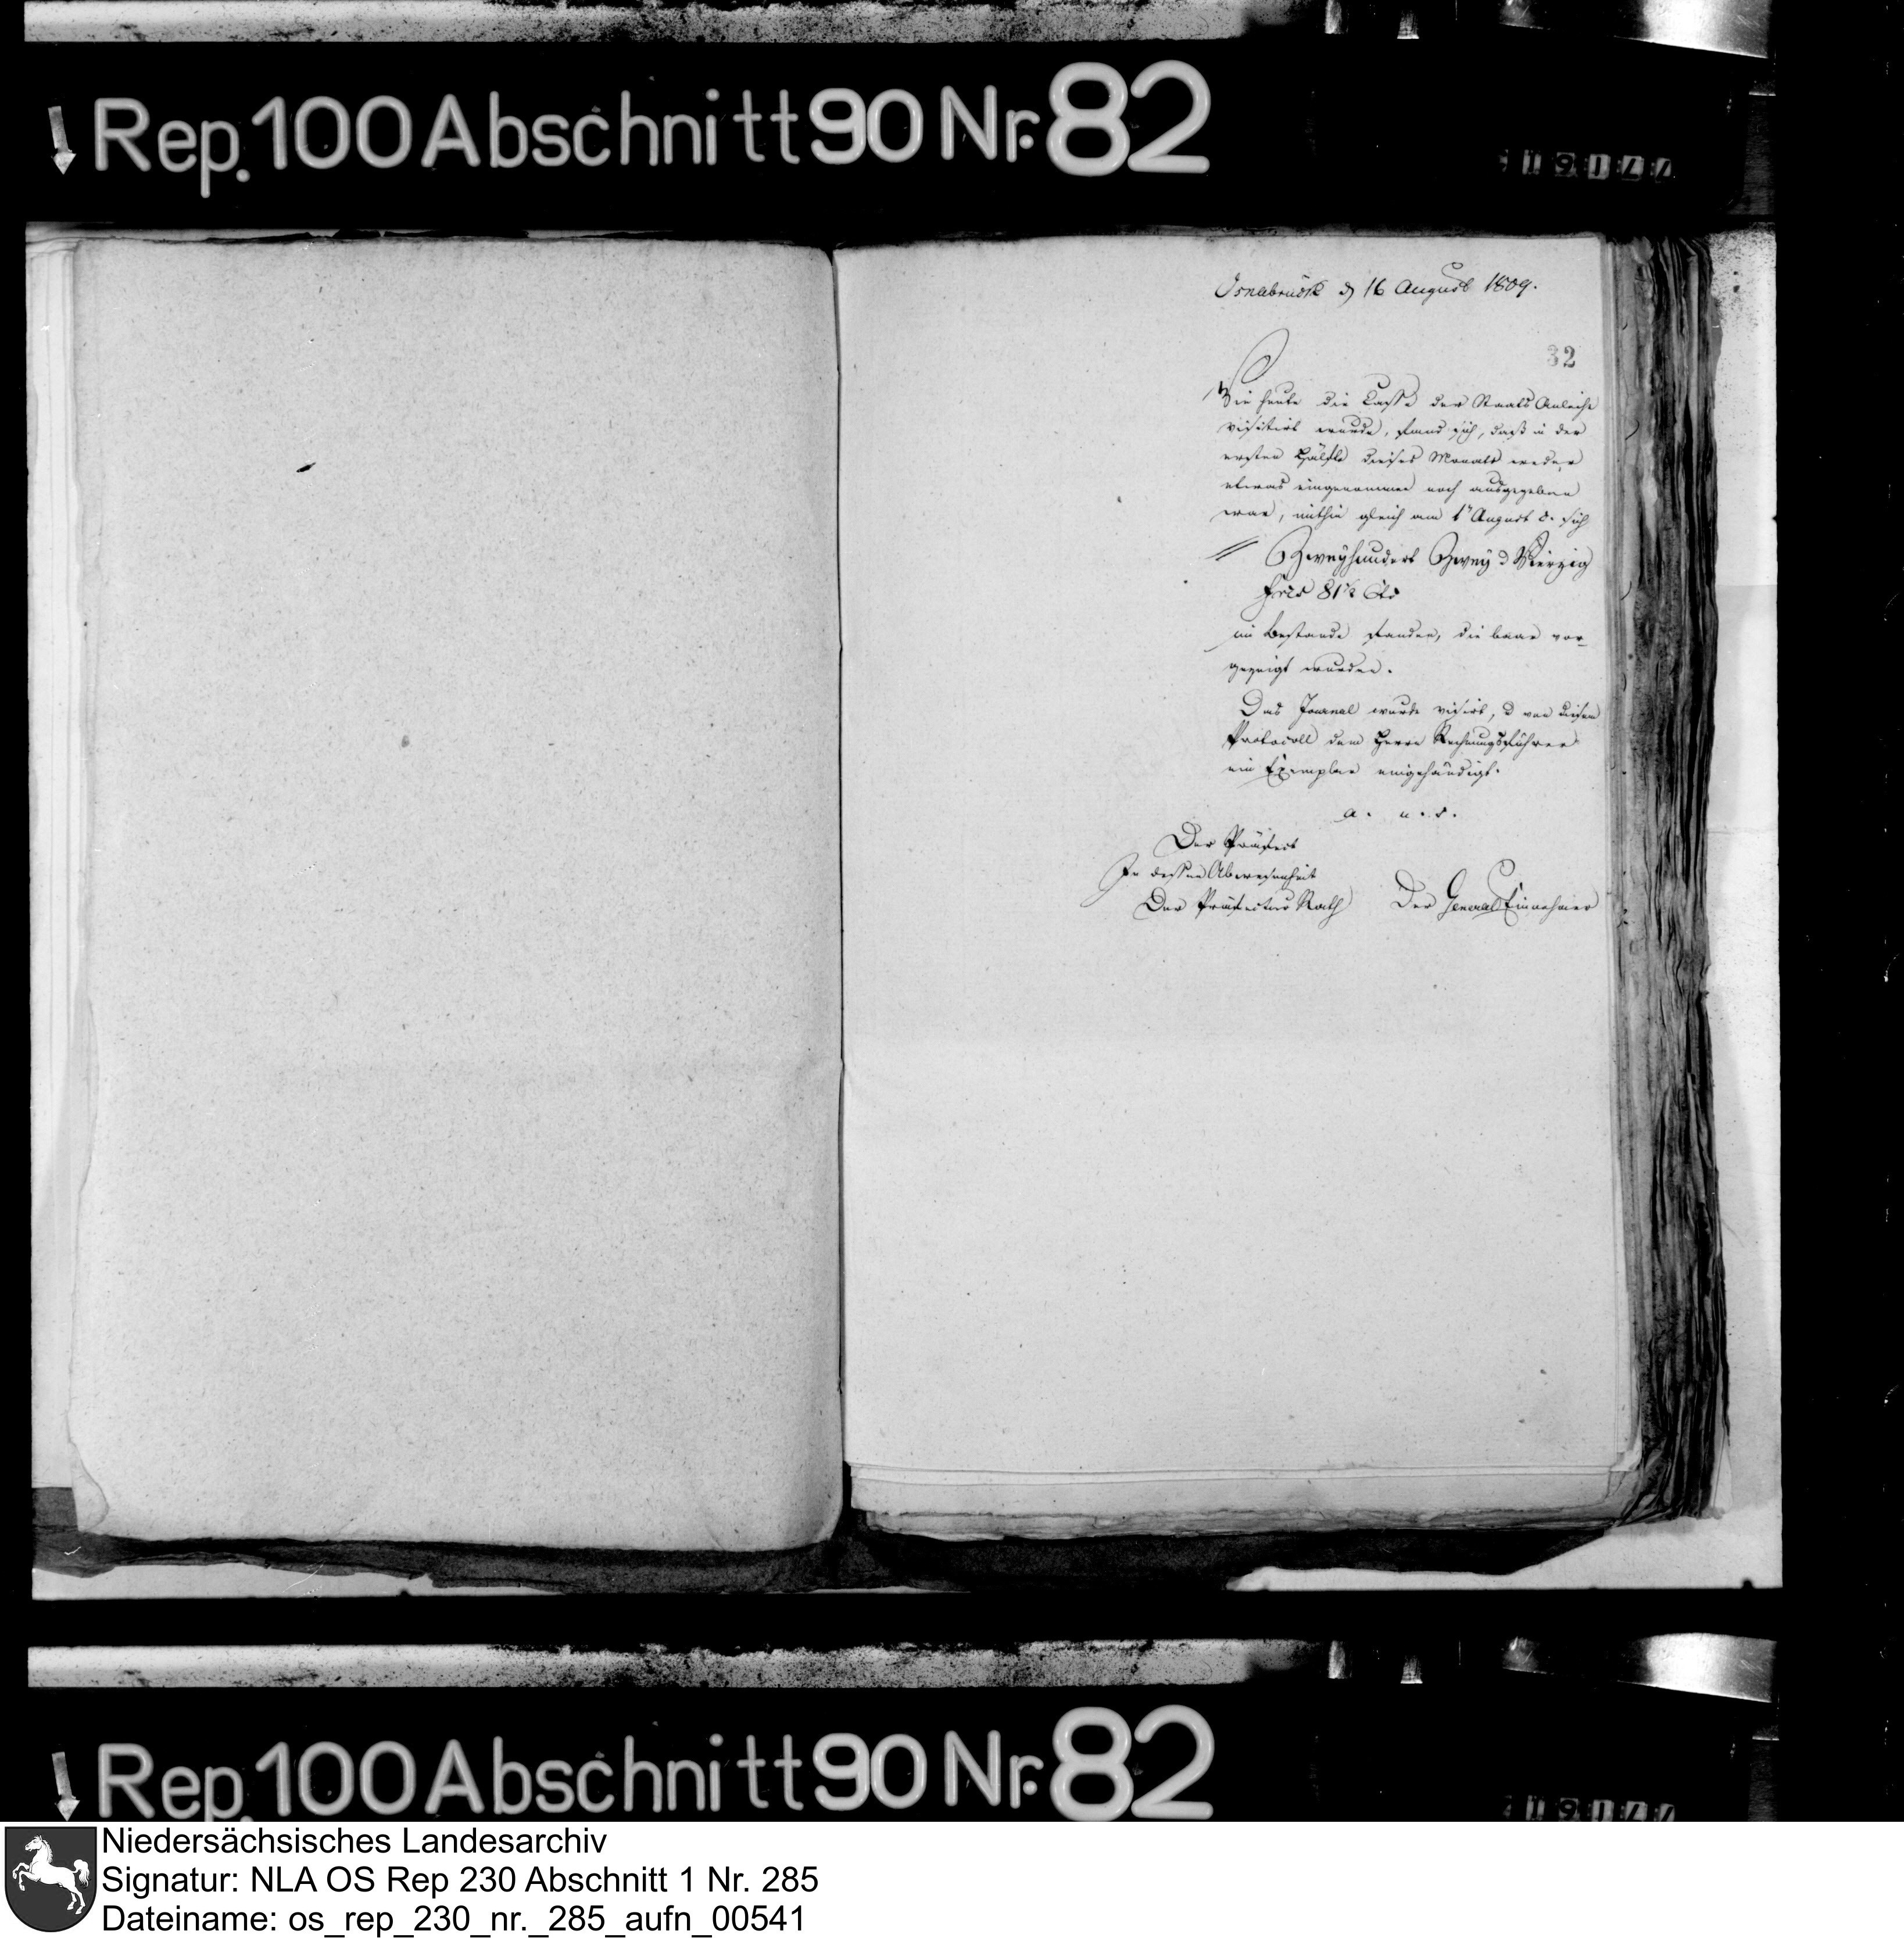 Rep. 100 Abschnitt 90 Nr. 82
Osnabrück d 16 August 1809.
32
Wie heute die Casse der Staats Anleihe
visitirt wurde, fand sich, daß in der
ersten Hälfte dieses Monats weder
etwas eingenommen noch ausgegeben
war, mithin gleich am 1 August d. sich
Zweyhundert Zwey d Vierzig
81½ Cts
im Bestande fanden, die baar vor-
gezeigt wurden.
Das Journal wurde visirt, d von diesem
Protocoll dem Herrn Rechnungsführer
ein Exemplar eingehändigt.
a. u. s.
Der Präfect
In dessen Abwesenheit
Der Präfectur Rath Der General Einnehmer
Rep. 100 Abschnitt 90 Nr. 82
Niedersächsisches Landesarchiv
Signatur: NLA OS Rep 230 Abschnitt 1 Nr. 285
Dateiname: os_rep_230_nr._285_aufn_00541